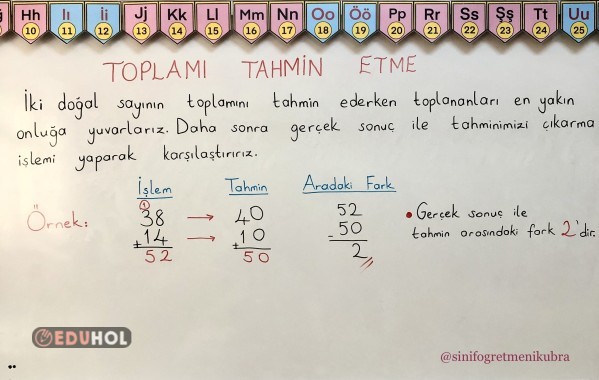 Hh Iı İi Jj Kk Ll Mm Nn Oo Öö Pp Rr Ss Şş Tt Uu
10 11 12 13 14 15 16 17 18 19 20 21 22 23 24 25
TOPLAMI TAHMİN ETME
İki doğal sayının toplamını tahmin ederken toplananları en yakın
onluğa yuvarlarız. Daha sonra gerçek sonuç ile tahminimizi çıkarma
işlemi yaparak karşılaştırırız.
İşlem Tahmin Aradaki Fark
Örnek:
1
38 → 40 52
+14 → +10 -50
52 50 2
• Gerçek sonuç ile
tahmin arasındaki fark 2'dir.
EDUHOL
@sinifogretmenikubra